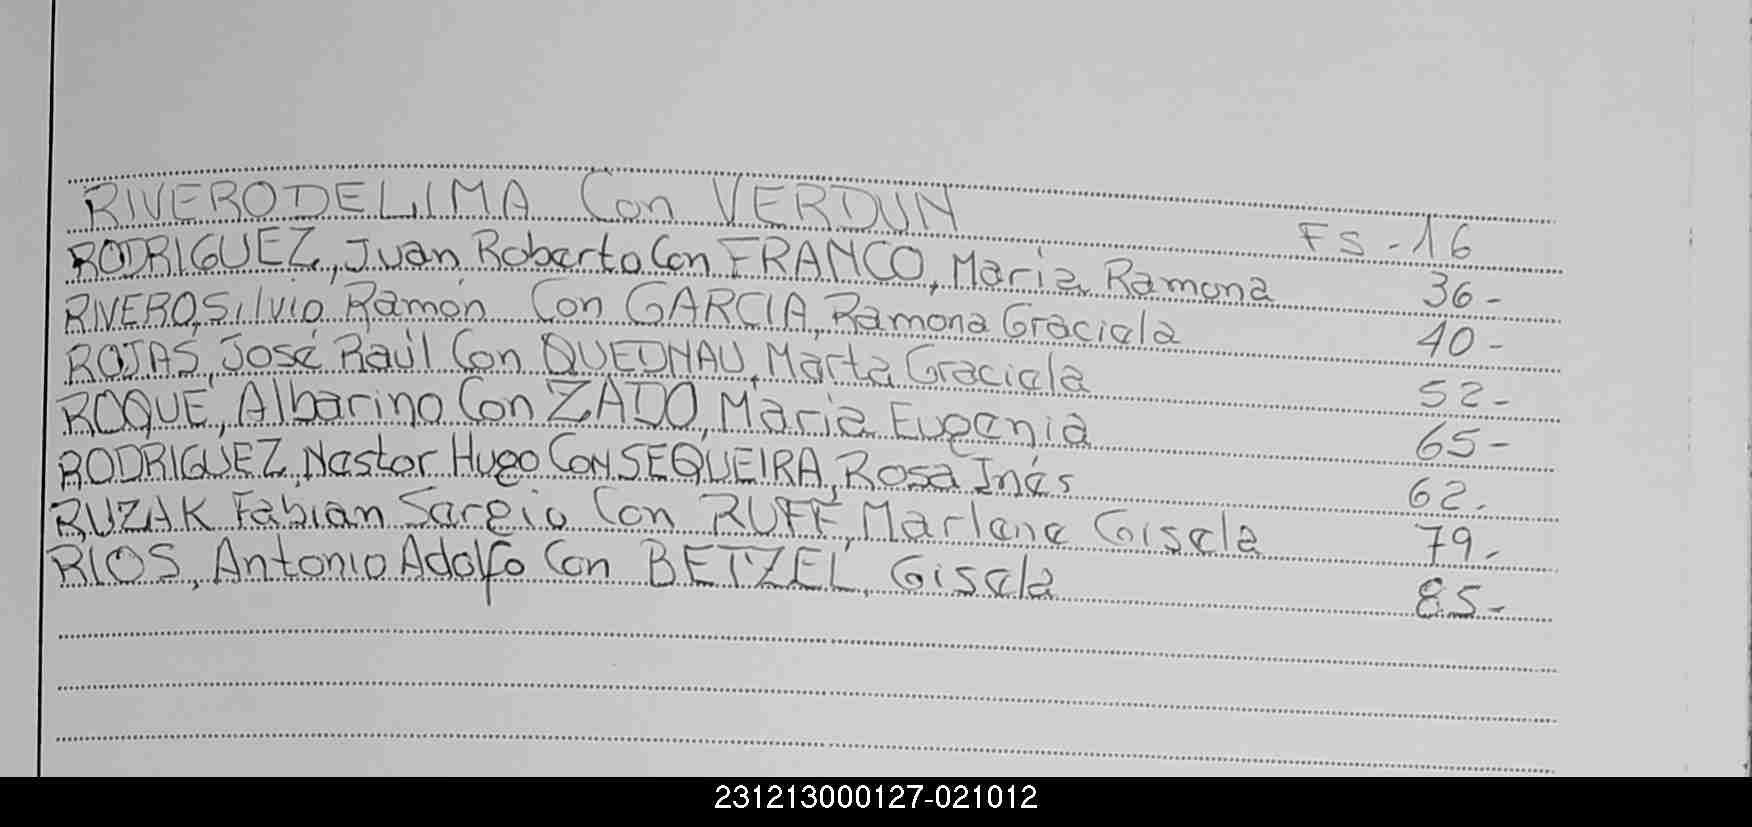 RIVERO DE LIMA Con VERDUN FS - 16
RODRIGUEZ, Juan Roberto Con FRANCO, Maria Ramona 36 -
RIVERO, Silvio Ramón Con GARCIA, Ramona Graciela 40 -
ROJAS, José Raúl Con QUEDNAU, Marta Graciela 52 -
ROQUE, Albarino Con ZADO, Maria Eugenia 65 -
RODRIGUEZ, Nestor Hugo Con SEQUEIRA, Rosa Inés 62 -
RUZAK Fabian Sergio Con RUFF, Marlene Gisela 79 -
RIOS, Antonio Adolfo Con BETZEL, Gisela 85 -
231213000127-021012